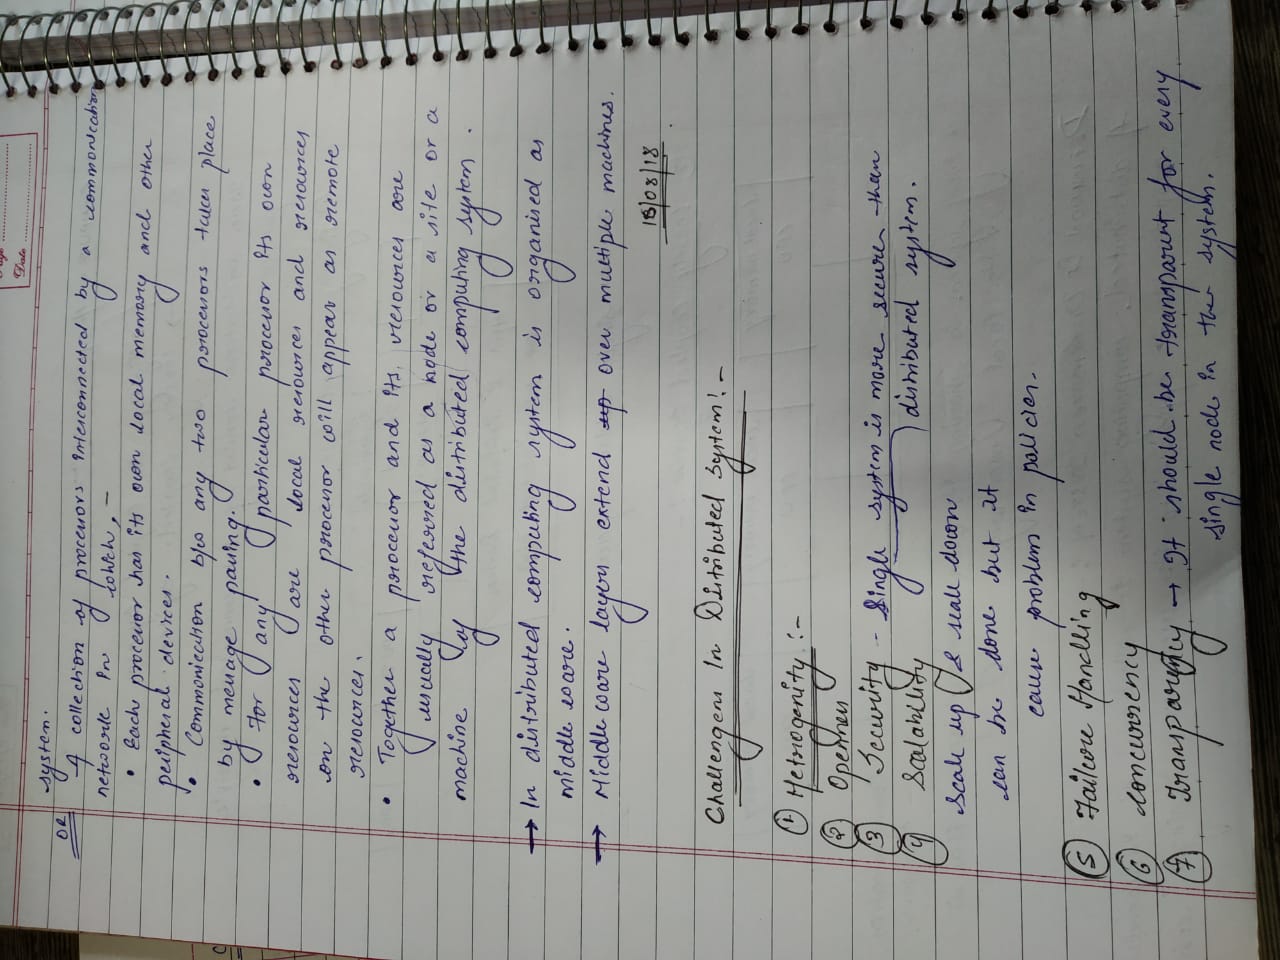 Page
Date
system.
OR
A collection of processors interconnected by a communication
network in which, -
• Each processor has its own local memory and other
peripheral devices.
• Communication b/w any two processors takes place
by message passing.
• For any particular processor its own
resources are local resources and resources
on the other processor will appear as remote
resources.
• Together a processor and its resources are
usually referred as a node or a site or a
machine of the distributed computing system.
→ In distributed computing system is organised as
middleware.
→ Middleware layers extend up over multiple machines.
15/08/18
Challengers In Distributed System:-
① Hetrogenity :-
② Openness
③ Security - Single system is more secure than
distributed system.
④ Scalability
Scale up & scale down
can be done but it
cause problem in policies.
⑤ Failure Handling
⑥ Concurrency
⑦ Transparency → It should be transparent for every
single node in the system.